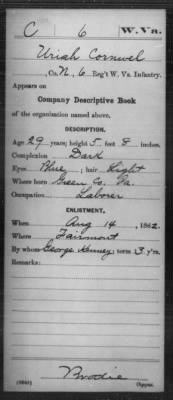 C 6 W. Va.
Uriah Cornwel
, Co. N, 6 Reg't W. Va. Infantry.
Appears on
Company Descriptive Book
of the organization named above.
DESCRIPTION.
Age 29 years; height 5 feet 8 inches.
Complexion Dark
Eyes Blue; hair Light
Where born Green Co. Pa.
Occupation Laborer
ENLISTMENT.
When Aug 14, 1862.
Where Fairmont
By whom George Kenney; term 3 y'rs.
Remarks:
Brodie
Copyist.